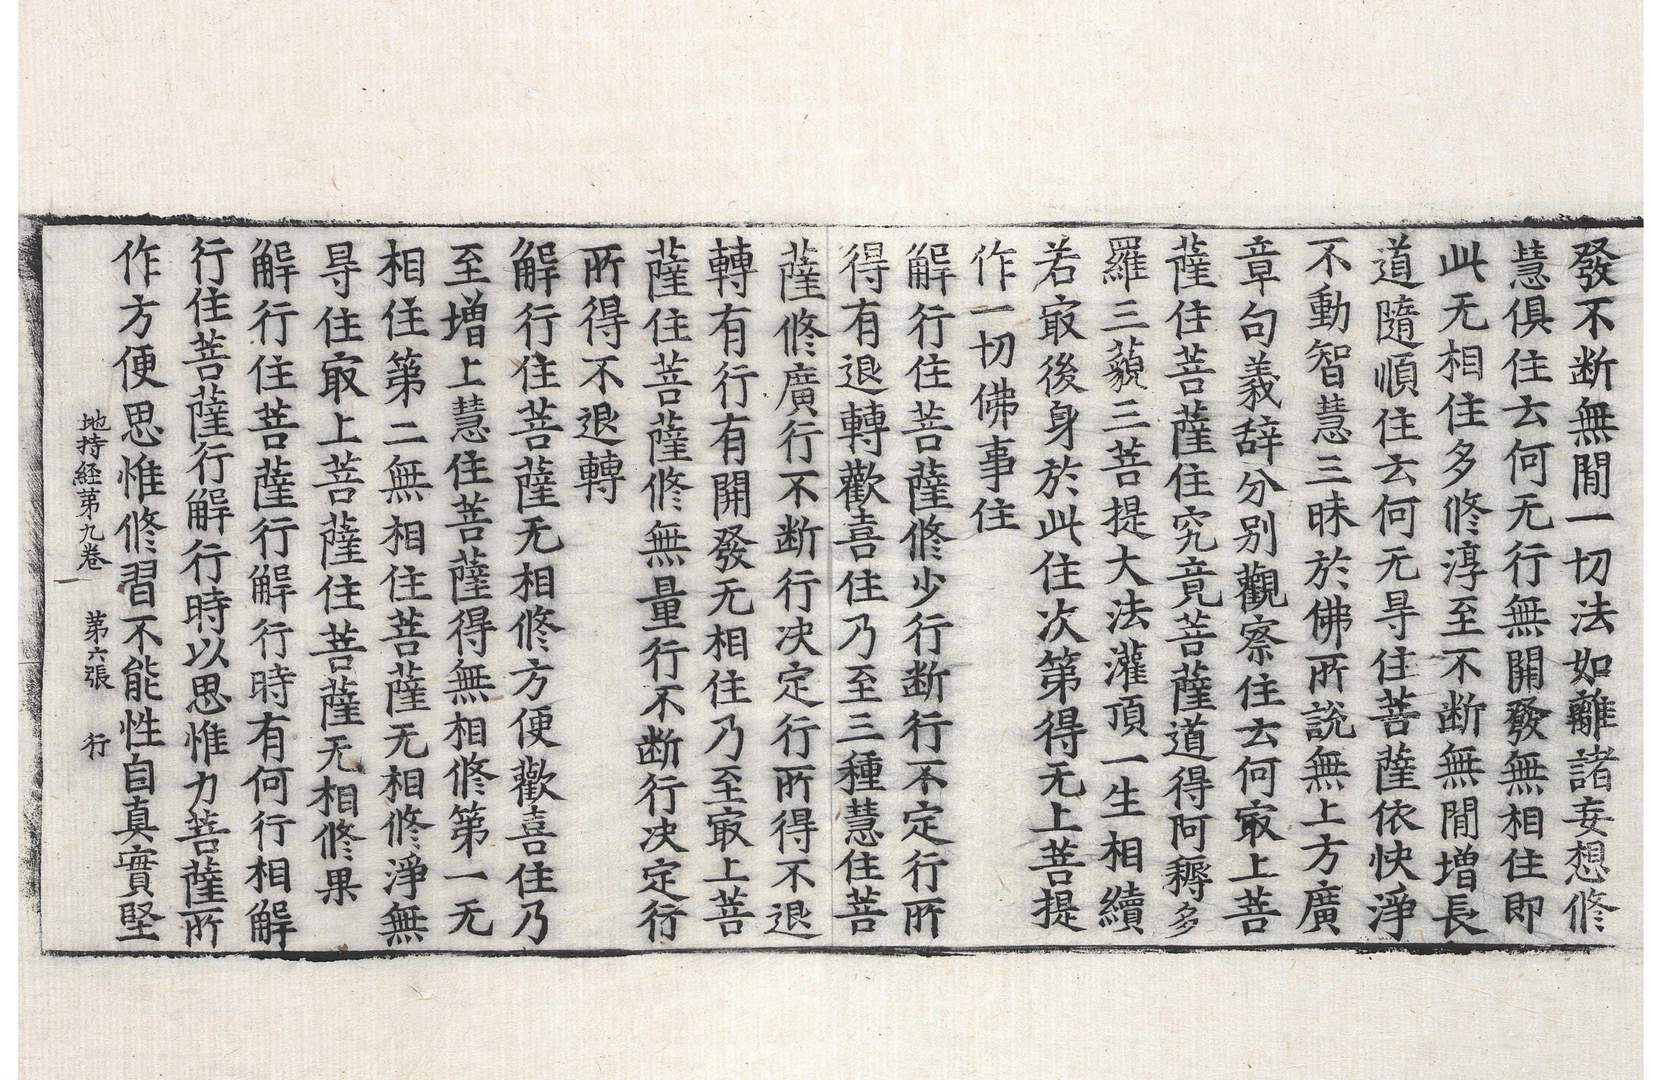 發不断無閒一切法如離諸妄想修
慧俱住云何无行無開發無相住即
此无相住多修淳至不断無閒增長
道隨順住云何无㝵住菩薩依快淨
不動智慧三昧於佛所說無上方廣
章句義辞分别觀察住云何㝡上菩
薩住菩薩住究竟菩薩道得阿耨多
羅三藐三菩提大法灌頂一生相續
若㝡後身於此住次第得无上菩提
作一切佛事住
解行住菩薩修少行断行不定行所
得有退轉歡喜住乃至三種慧住菩
薩修廣行不断行决定行所得不退
轉有行有開發无相住乃至㝡上菩
薩住菩薩修無量行不断行决定行
所得不退轉
解行住菩薩无相修方便歡喜住乃
至增上慧住菩薩得無相修第一无
相住第二無相住菩薩无相修淨無
㝵住㝡上菩薩住菩薩无相修果
解行住菩薩行解行時有何行相解
行住菩薩行解行時以思惟力菩薩所
作方便思惟修習不能性自真實堅
地持経第九卷 第六張 行